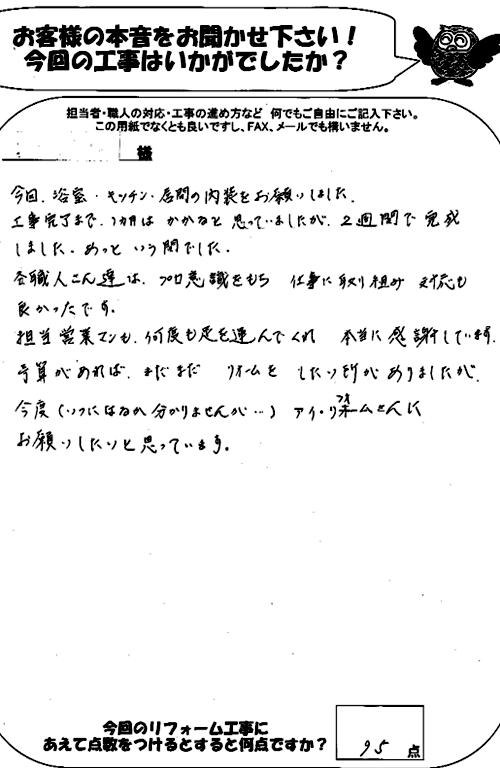 お客様の本音をお聞かせ下さい！
今回の工事はいかがでしたか？
担当者・職人の対応・工事の進め方など 何でもご自由にご記入下さい。
この用紙でなくとも良いですし、FAX、メールでも構いません。
様
今回、浴室・キッチン・居間の内装をお願いしました。
工事完了まで、1カ月は かかるなと 思っていましたが、2週間で完成
しました。あっと いう間でした。
各職人さん達は、プロ意識をもち 仕事に取り組み 対応も
良かったです。
担当営業マンも、何度も足を運んでくれ 本当に感謝しています。
予算があれば、まだまだ リフォームを したい所がありましたが、
今度(いつになるか分かりませんが…) アイ・リフォームさんに
お願いしたいと思っています。
今回のリフォーム工事に
あえて点数をつけるとすると何点ですか？ 95 点